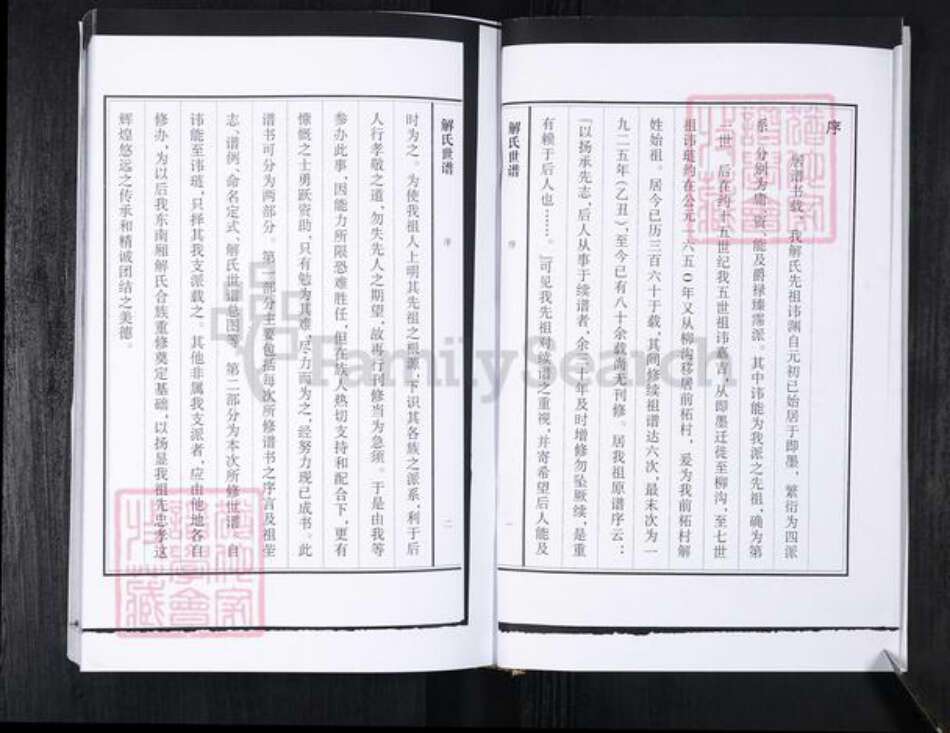 序
居谱书载，我解氏先祖讳渊自元初已始居于即墨，繁衍为四派
系，分别为庸、资、能及爵禄臻霭派。其中讳能为我派之先祖，确为第
一世，后在约十五世纪我五世祖讳嘉言，从即墨迁徙至柳沟，至七世
祖讳琏约在公元一六五0年又从柳沟移居前柘村，爰为我前柘村解
姓始祖。居今已历三百六十于载，其间修续祖谱达六次，最末次为一
九二五年（乙丑），至今已有八十余载尚无刊修。居我祖原谱序云：
“以扬承先志，后人从事于续谱者，余三十年及时增修勿坠厥续，是重
有赖于后人也……。”可见我先祖对续谱之重视，并寄希望后人能及
解氏世谱
序
一
解氏世谱
序
二
时为之。为使我祖人上明其先祖之熙源，下识其各族之派系，利于后
人行孝敬之道，勿失先人之期望，故再行刊修当为急须。于是由我等
参办此事，因能力所限恐难胜任，但在族人热切支持和配合下，更有
慷慨之士勇跃资助，只有勉为其难，尽力而为之，经努力现已成书。此
谱书可分为两部分。第一部分主要包括每次所修谱书之序言及祖茔
志、谱例、命名定式、解氏世谱总图等。第二部分为本次所修世谱，自
讳能至讳琏，只择其我支派载之。其他非属我支派者，应由他地各自
修办，为以后我东南厢解氏合族重修奠定基础，以扬显我祖先忠孝这
辉煌悠远之传承和精诚团结之美德。
FamilySearch